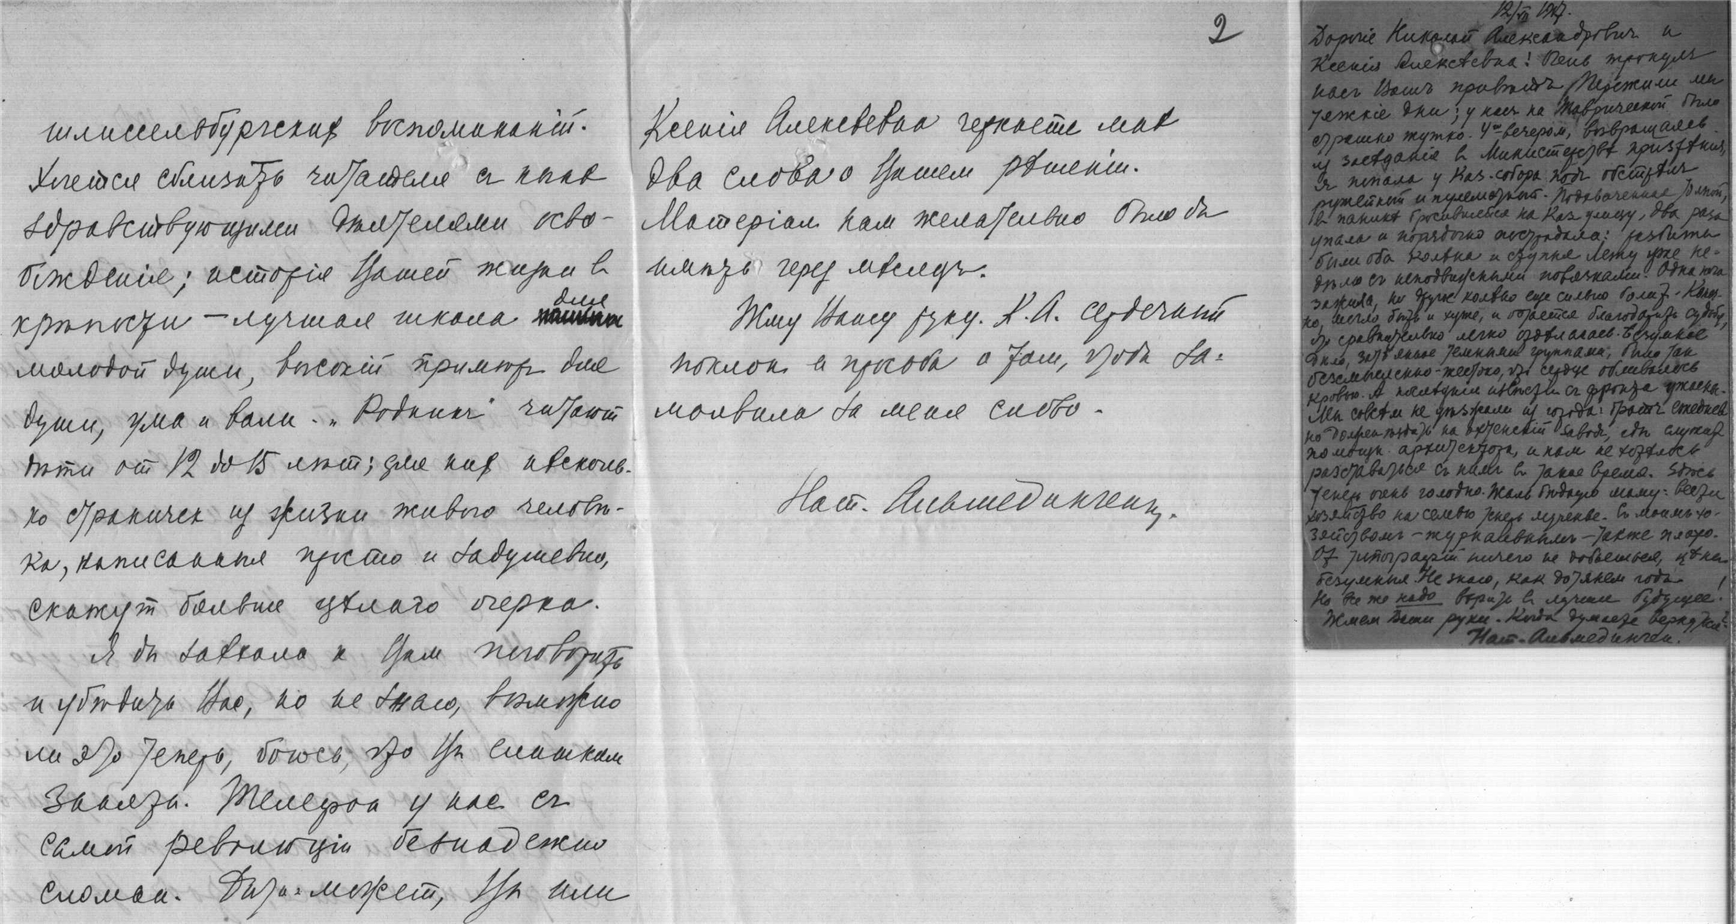 2
шлиссельбургских воспоминаній.
Хочется сблизить читателя с ныне
здравствующими деятелями осво-
божденія; исторія Вашей жизни в
крѣпости – лучшая школа для
молодой души, высокій примѣр для
души, ума и воли. „Родник" читают
дѣти от 12 до 15 лѣт; для них нѣсколь-
ко страничек из жизни живого человѣ-
ка, написанныя просто и задушевно,
скажут больше цѣлаго очерка.
Я бы заѣхала к Вам поговорить
и убѣдить Вас, но не знаю, возможно
ли это теперь, боюсь, что Вы слишком
заняты. Телефон у нас съ
самой революціи безнадежно
сломан. Быть-может, Вы или
Ксенія Алексѣевна черкнете мнѣ
два слова о Вашем рѣшеніи.
Матеріал нам желательно было бы
имѣть через мѣсяцъ.
Жму Вашу руку. К. А. сердечный
поклон и просьба о том, чтобы за-
молвила за меня слово.
Наст. Альмединген.
12/VII 1917.
Дорогіе Николай Александровичъ и
Ксенія Алексѣевна! Очень тронулъ
насъ Вашъ привѣтъ. Пережили мы
тяжкіе дни; у насъ на Таврической было
страшно жутко. 4го вечером, возвращаясь
из засѣданія в Министерствѣ призрѣнія,
я попала у Каз. собора подъ обстрѣлъ
ружейный и пулеметный. Подхваченная толпой,
в паникѣ бросившейся на Каз. улицу, два раза
упала и порядочно пострадала: разбиты
были оба колѣна и ступня. Лежу уже не-
дѣлю съ неподвижными повязками. Одна нога
зажила, но другое колѣно еще сильно болит. Конеч-
но, могло быть и хуже, и остается благодарить судьбу,
что сравнительно легко отдѣлалась. Безумное
дѣло, затѣянное темными группами, было так
безсмысленно-жестоко, что сердце обливалось
кровью. А послѣднія извѣстія съ фронта ужасны.
Мы совсѣм не уѣзжали из города: братъ ежеднев-
но должен ѣздить на Охтенскій завод, гдѣ служит
помощн. архитектора, и нам не хотѣлось
разставаться съ ним в такое время. Здѣсь
теперь очень голодно. Жаль бѣдную маму: вести
хозяйство на семью теперь мученье. Съ моимъ хо-
зяйством – журнальным – также плохо.
От типографій ничего не добьешься, цѣны
безумныя. Не знаю, как дотянем года
Но все же надо вѣрить в лучшее будущее!
Жмем Ваши руки. Когда думаете вернуться?
Наст. Альмединген.